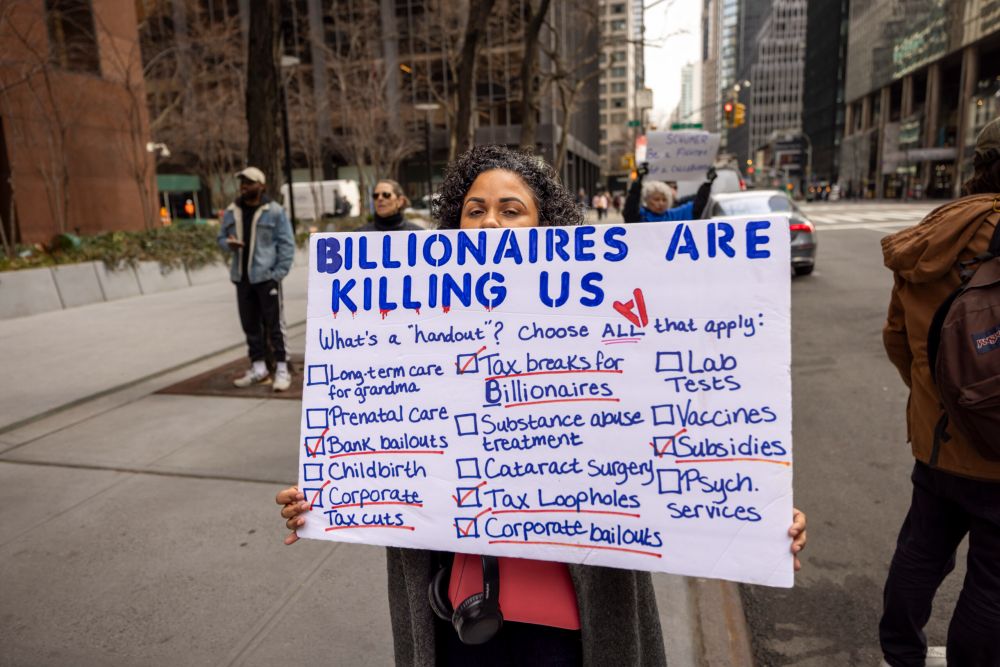 SCHUMER
BE A FIGHTER
BILLIONAIRES ARE
KILLING US
What's a "handout"? Choose ALL that apply:
Long-term care
for grandma
Prenatal Care
Bank bailouts
Childbirth
Corporate
Tax cuts
Tax breaks for
Billionaires
Substance abuse
treatment
Cataract Surgery
Tax Loopholes
Corporate bailouts
Lab
Tests
Vaccines
Subsidies
Psych.
services
JANSPORT